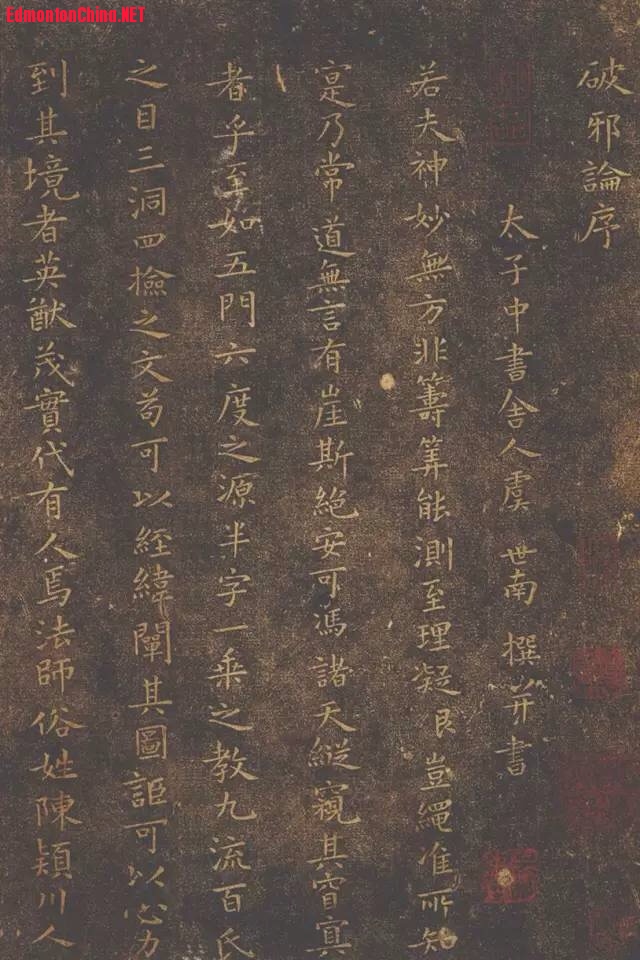 EdmontonChina.NET
破邪論序
太子中書舍人虞世南撰并書
若夫神妙無方非籌筭能測至理凝豈繩准所知
寔乃常道無言有崖斯絕安可馮諸天縱窺其窅冥
者乎至如五門六度之源半字一乘之教九流百氏
之目三洞四檢之文苟可以經緯闡其圖詎可以心力
到其境者英猷茂實代有人焉法師俗姓陳潁川人